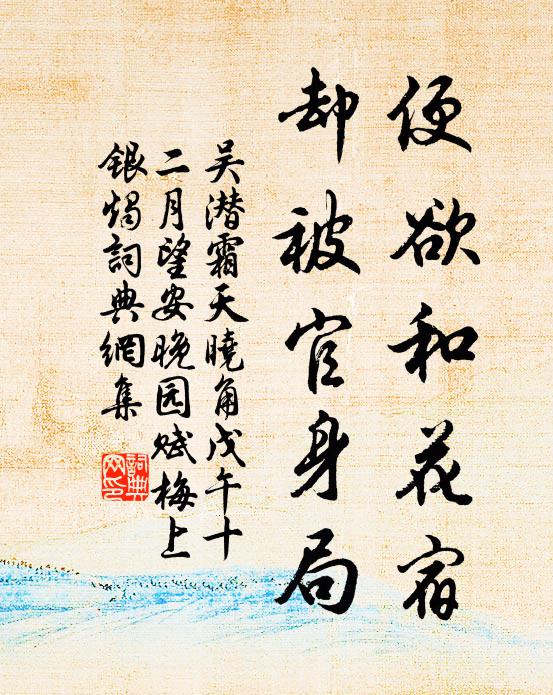 便欲和花宿
却被官身局
吴潜霜天曉角戊午十
二月望安晚园赋梅上
银烛詞典網集
詞典
网印